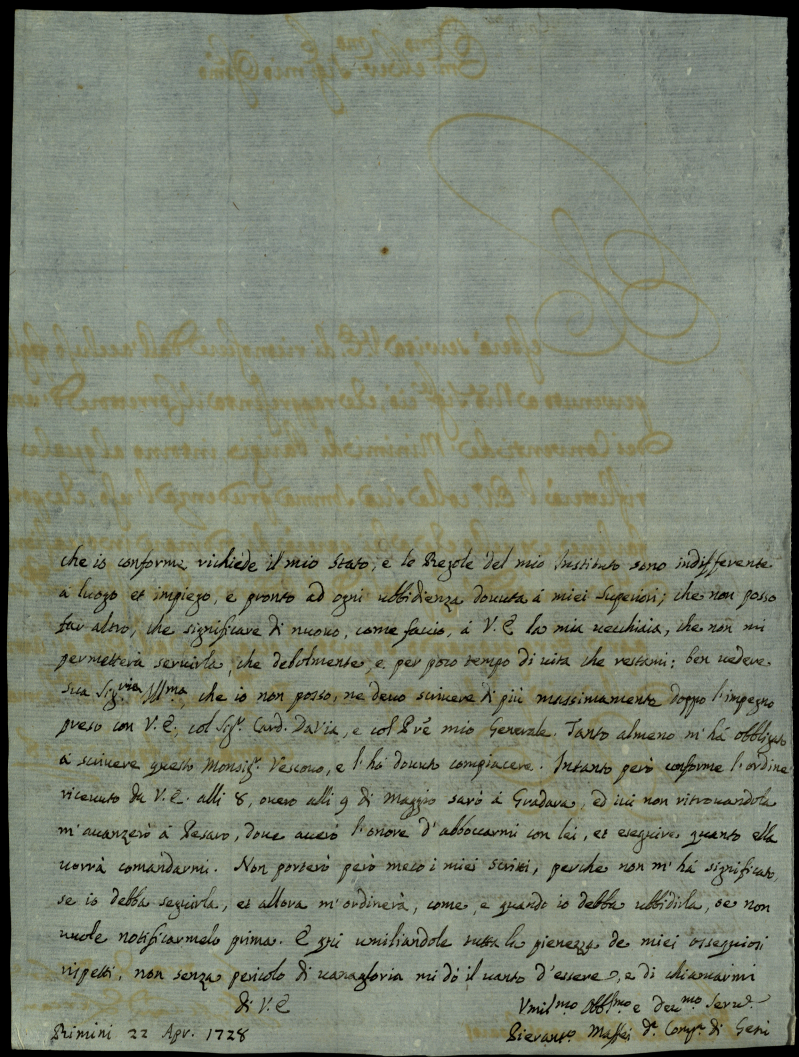 che io conforme richiede il mio stato, e le Regole del mio Instituto sono indifferente
a luogo et impiego, e pronto ad ogni ubbidienza douuta á miei Superiori; che non posso
far altro, che significare di nuouo, come faccio, á V. E. la mia uecchiaia, che non mi
permetterà seruirla, che debolmente, e per poco tempo di uita che restami; ben uedere
sua Sig.ria Ill.ma, che io non posso, ne deuo scriuere di più massimamente doppo l'impegno
preso con V. E., col Sig.r Card. Davia, e col Pre mio Generale. Tanto almeno m'há obbligato
á scriuere questo Monsig.r Vescouo, e l'há douuto compiacere. Intanto però conforme l'ordine
riceuuto da V. E. alli 8, ouero alli 9 di Maggio sarò á Gradara, ed iui non ritrouandola
m'auanzerò á Pesaro, doue auerò l'onore d'abboccarmi con lei, et eseguire quanto ella
uorrà comandarmi. Non porterò però meco i miei scritti, perche non m'há significato,
se io debba seguirla, et allora m'ordinerà, come, e quando io debba ubbidirla, se non
uuole notificarmelo prima. E qui umiliandole tutta la pienezza de miei ossequiosi
rispetti, non senza pericolo di uanagloria mi dò il uanto d'essere, e di chiamarmi
di V. E.
Vmil.mo Obb.mo e deu.mo Seru.e
Rimini 22 Apr. 1728
Pierant.o Maffei d.a Comp.a di Gesù